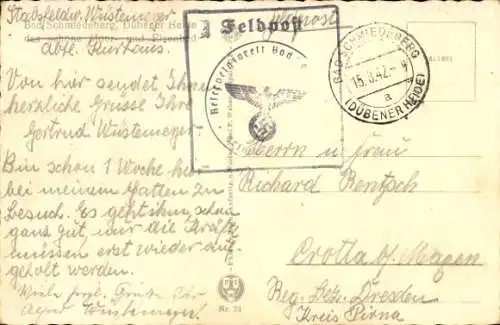 Stabsfeldw. Wüstemeyer
Bad Schmiedeberg, Dübener Heide
Abtl. Kurhaus.
Feldpost
Von hier sendet Ihnen
herzliche Grüsse Ihre
Gertrud Wüstemeyer
Bin schon 1 Woche hier
bei meinem Gatten zu
Besuch. Es geht ihm schon
ganz gut, nur die Kräfte
müssen erst wieder auf-
geholt werden.
Viele Grüße Ihr
Wüstemeyer.
Nr. 21
Reservelazarett Bad
BAD SCHMIEDEBERG
15.8.42.- 9
a
(DÜBENER HEIDE)
Herrn u Frau
Richard Rentzsch
Crotta b/ Maxen
Reg. Bez. Dresden
Kreis Pirna